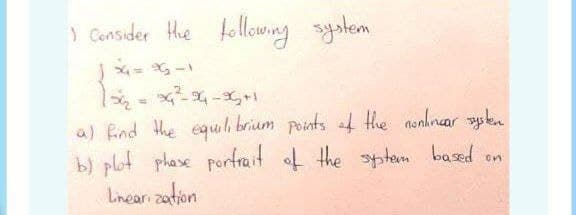 ) Consider the following system
ẋ₁ = x₂ - 1
ẋ₂ = x₁² - x₁ - x₂ + 1
a) find the equilibrium points of the nonlinear system
b) plot phase portrait of the system based on
Linearization